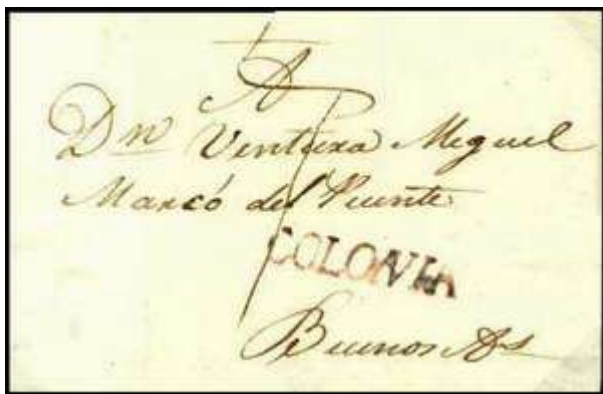 A
Dn Ventura Miguel
Marcó del Puente
COLONIA
Buenos As